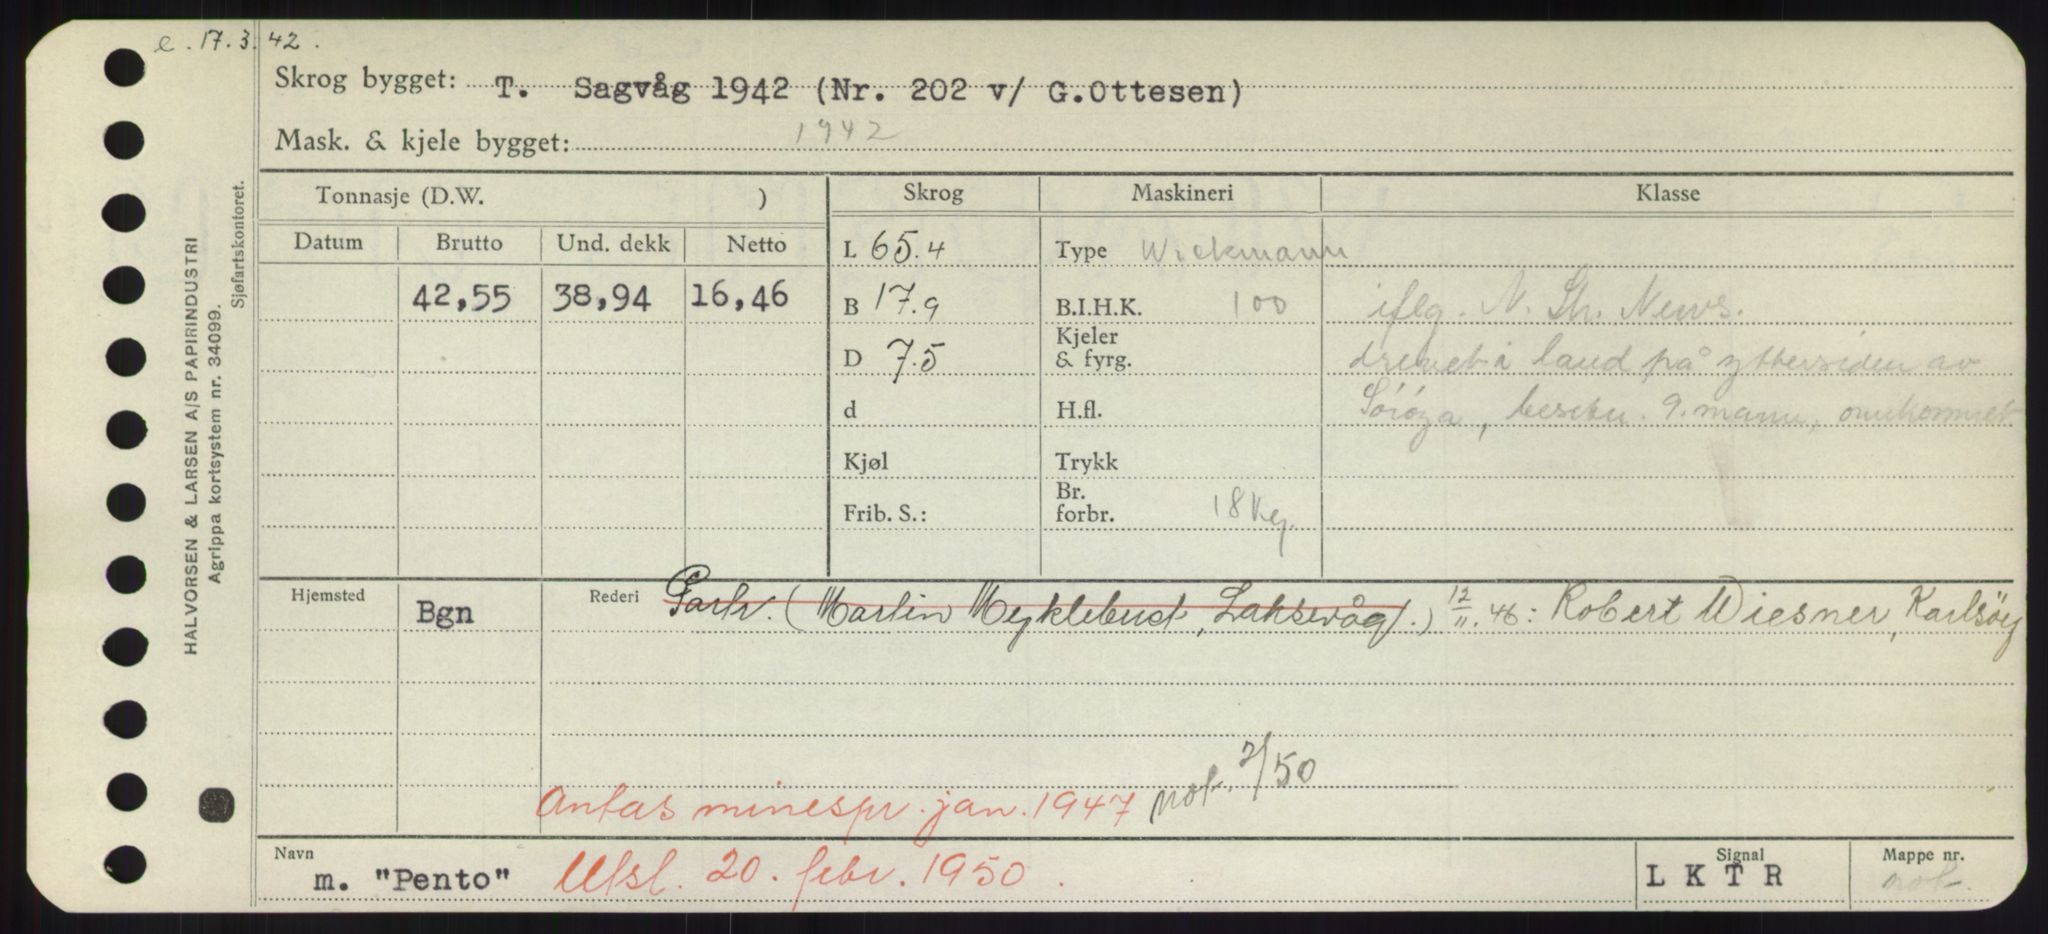 e. 17.3.42.
Skrog bygget: T. Sagvåg 1942 (Nr. 202 v/ G.Ottesen)
Mask. & kjele bygget: 1942
Tonnasje (D.W. )
Skrog
Maskineri
Klasse
Datum
Brutto
Und. dekk
Netto
42,55 38,94 16,46
L 65.4
B 17.9
D 7.5
d
Kjøl
Frib. S.:
Type Wickmann
B.I.H.K. 100
Kjeler
& fyrg.
H.fl.
Trykk
Br.
forbr. 18 kg.
iflg. N. Sh. News.
drevet i land på yttersiden av
Sørøya, besetn. 9. mann, omkommet
Hjemsted Bgn
Rederi Partr. (Martin Myklebust, Laksevåg.) 12/11.46: Robert Wiesner, Karlsöy
Antas minespr. jan. 1947 not. 2/50
Navn
m. "Pento" Utsl. 20. febr. 1950.
Signal
L K T R
Mappe nr.
not.
HALVORSEN & LARSEN A/S PAPIRINDUSTRI
Agrippa kortsystem nr. 34099.
Sjøfartskontoret.